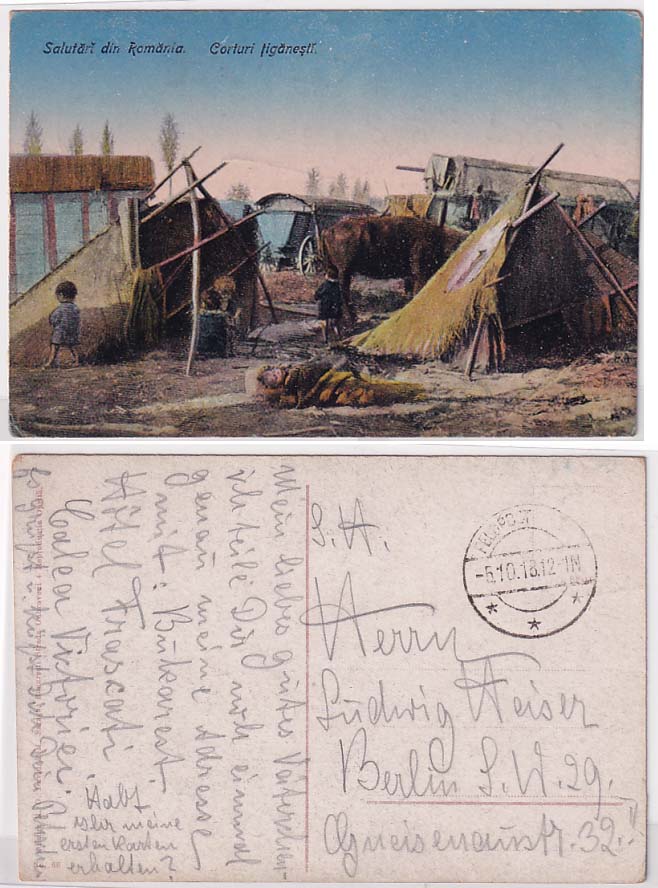 Salutări din România. Corturi țigănești.
Mein liebes gutes Väterchen
ich teile Dir noch einmal
genau meine Adresse
mit: Bukarest.
Hôtel Frascati
Calea Victoriei.
Habt
Ihr meine
ersten Karten
erhalten?
FELDPOST
-5.10.18.12-1N
S. H.
Herrn
Ludwig Heiser
Berlin S.W. 29.
Gneisenaustr. 32.